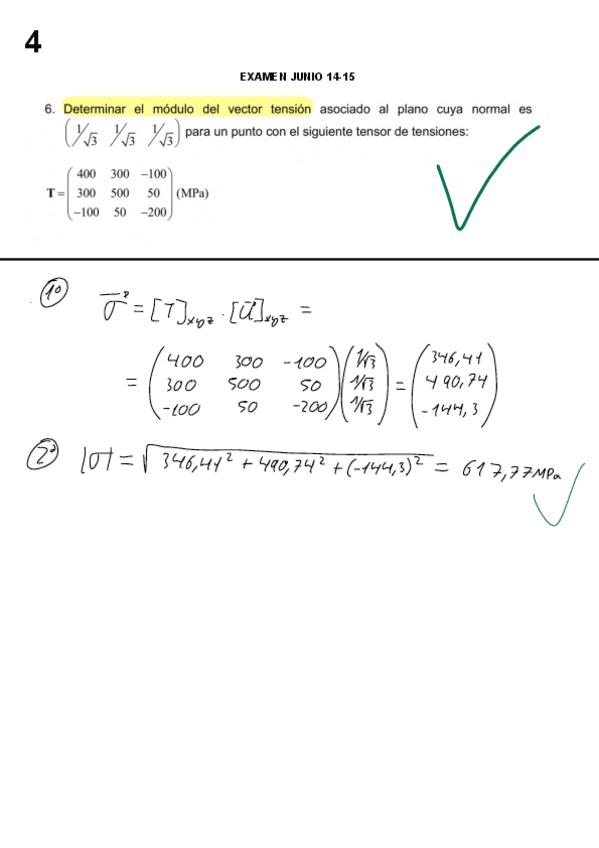 4
EXAMEN JUNIO 14-15
6. Determinar el módulo del vector tensión asociado al plano cuya normal es
(1/√3 1/√3 1/√3) para un punto con el siguiente tensor de tensiones:
400 300 -100
T = 300 500 50 (MPa)
-100 50 -200
1º σ⃗ = [T]xyz · [u⃗]xyz =
= (400 300 -100) (1/√3) (346,41)
(300 500 50) (1/√3) = (490,74)
(-100 50 -200) (1/√3) (-144,3)
2º |σ| = √346,41² + 490,74² + (-144,3)² = 617,77 MPa